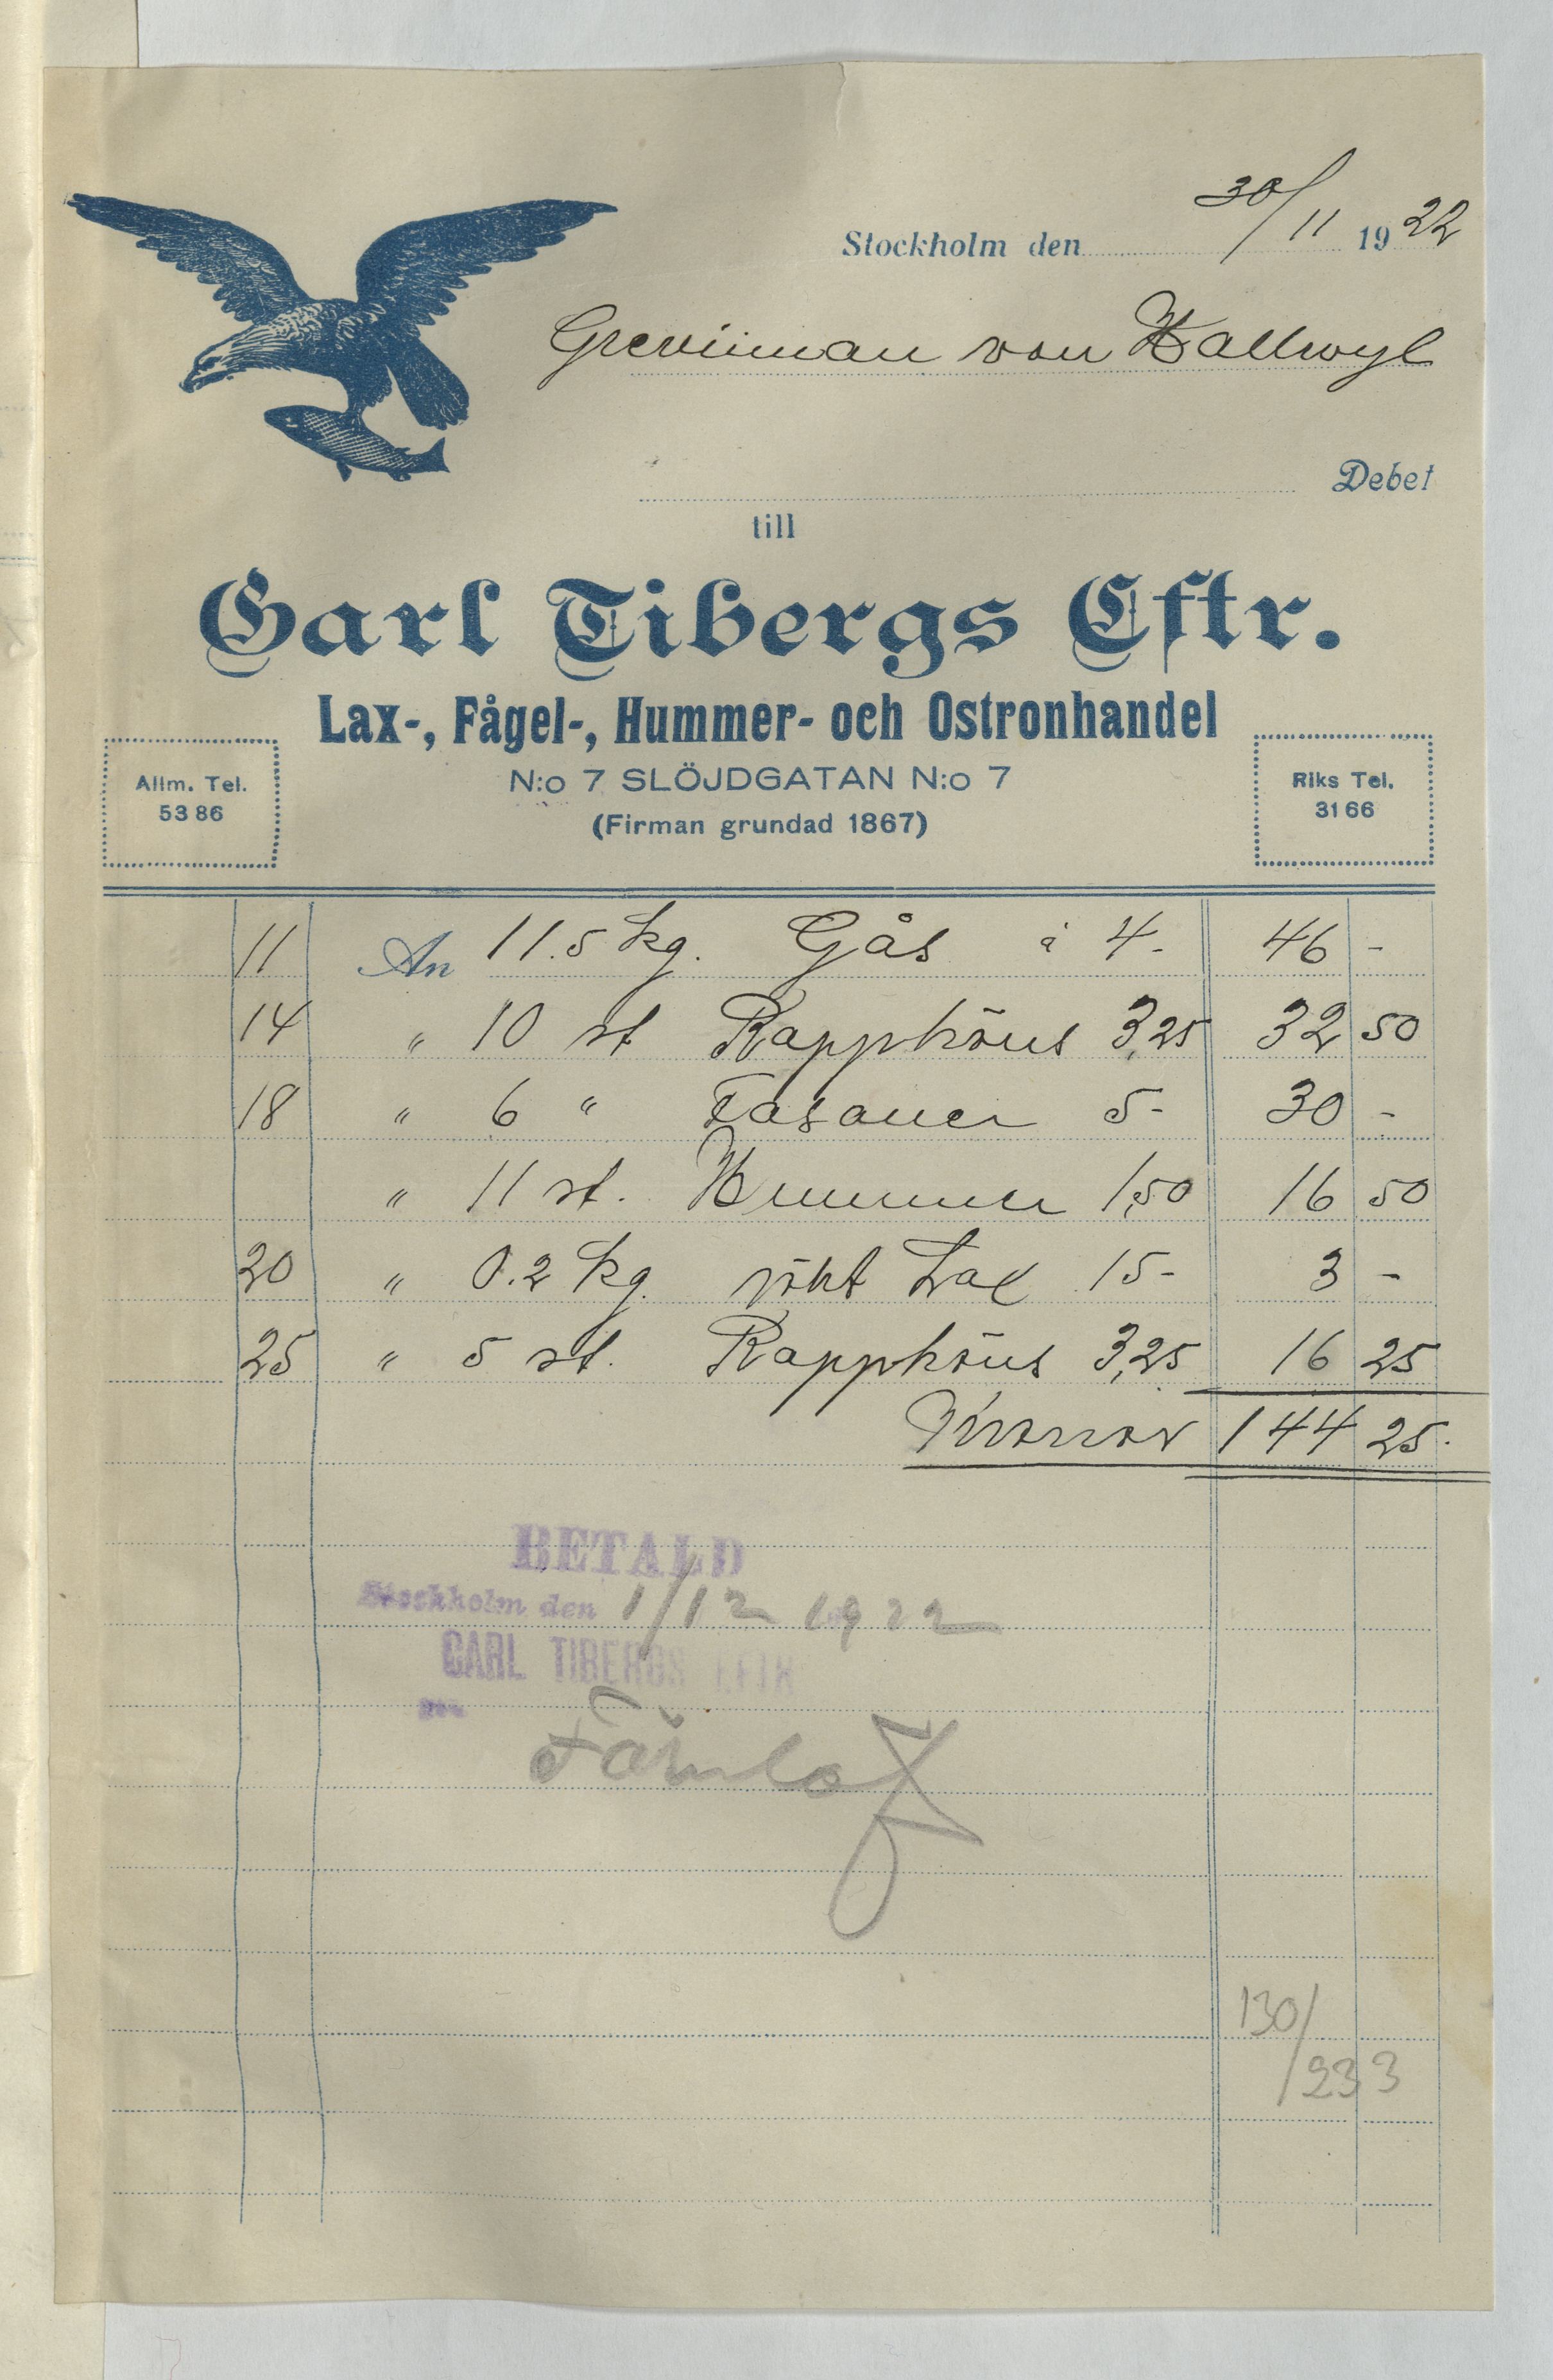 Stockholm den 30/11 1922
Grevinnan von Hallwyl
Debet
till
Carl Tibergs Eftr.
Lax-, Fågel-, Hummer- och Ostronhandel
Allm. Tel.
53 86
N:o 7 SLÖJDGATAN N:o 7
(Firman grundad 1867)
Riks Tel.
31 66
11 An 11.5 kg. Gås à 4- 46 -
14 " 10 st Rapphöns 3,25 32 50
18 " 6 " Fasaner 5- 30 -
" 11 st. Hummer 1,50 16 50
20 " 0.2 kg. rökt Lax 15- 3 -
25 " 5 st. Rapphöns 3,25 16 25
Kronor 144 25.
BETALD
Stockholm den 1/12 1922
CARL TIBERGS EFTR
130/
/233